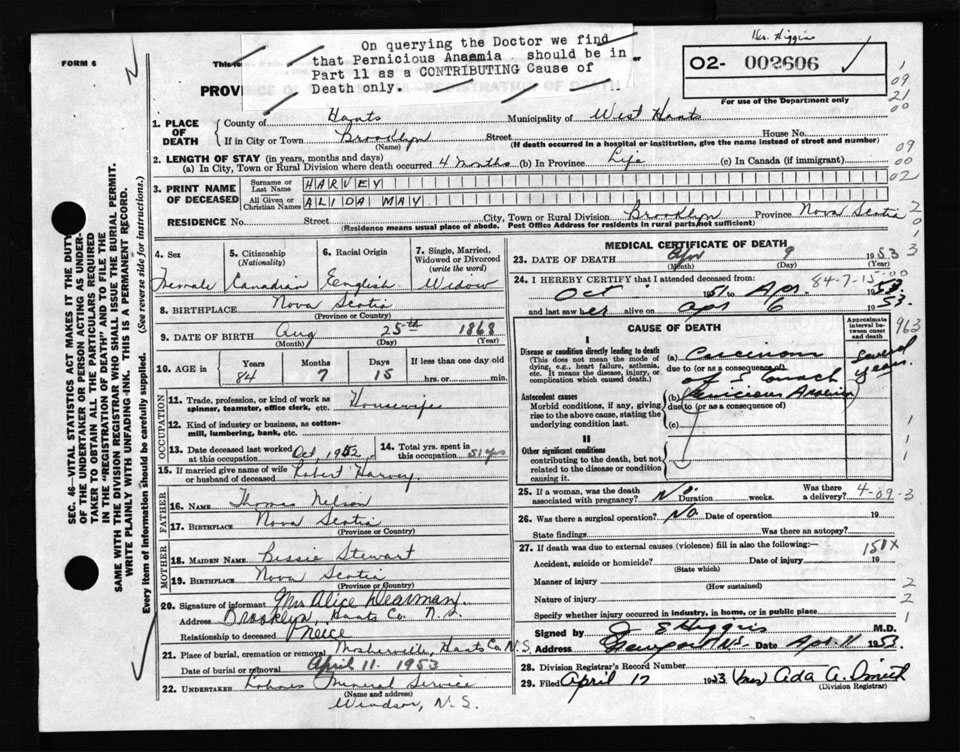 Dr. Higgins
On querying the Doctor we find
that Pernicious Anaemia should be in
Part 11 as a CONTRIBUTING Cause of
Death only.
FORM 6
This
PROVINCE REGISTRATION OF DEATH
02- 002606
For use of the Department only
1. PLACE OF DEATH
County of Hants Municipality of West Hants
If in City or Town Brooklyn Street House No.
(Name) (If death occurred in a hospital or institution, give the name instead of street and number)
2. LENGTH OF STAY (in years, months and days)
(a) In City, Town or Rural Division where death occurred 4 months (b) In Province Life (c) In Canada (if immigrant)
3. PRINT NAME OF DECEASED
Surname or Last Name HARVEY
All Given or Christian Names ALIDA MAY
RESIDENCE No. Street City, Town or Rural Division Brooklyn Province Nova Scotia
(Residence means usual place of abode. Post Office Address for residents in rural parts, not sufficient)
4. Sex Female
5. Citizenship (Nationality) Canadian
6. Racial Origin English
7. Single, Married, Widowed or Divorced (write the word) Widow
8. BIRTHPLACE Nova Scotia
(Province or Country)
9. DATE OF BIRTH Aug 25th 1868
(Month) (Day) (Year)
10. AGE in Years 84 Months 7 Days 15 If less than one day old hrs. or min.
OCCUPATION
11. Trade, profession, or kind of work as spinner, teamster, office clerk, etc. Housewife
12. Kind of industry or business, as cotton-mill, lumbering, bank, etc.
13. Date deceased last worked at this occupation Oct, 1952
14. Total yrs. spent in this occupation 51 yrs
15. If married give name of wife or husband of deceased Robert Harvey
FATHER
16. NAME Thomas Nelson
17. BIRTHPLACE Nova Scotia
(Province or Country)
MOTHER
18. MAIDEN NAME Bessie Stewart
19. BIRTHPLACE Nova Scotia
(Province or Country)
20. Signature of informant Mrs Alice Dearman
Address Brooklyn, Hants Co. N.S.
Relationship to deceased Niece
21. Place of burial, cremation or removal Mosherville, Hants Co, N.S.
Date of burial or removal April 11. 1953
22. UNDERTAKER Funeral Service
(Name and address)
Windsor, N.S.
MEDICAL CERTIFICATE OF DEATH
23. DATE OF DEATH Apr 9 1953
(Month) (Day) (Year)
24. I HEREBY CERTIFY that I attended deceased from: 84-7-15-00
Oct 1951 to Apr. 1953
and last saw her alive on Apr 6 1953.
CAUSE OF DEATH
Approximate interval between onset and death
I
Disease or condition directly leading to death
(This does not mean the mode of dying, e.g., heart failure, asthenia, etc. It means the disease, injury, or complication which caused death.)
(a) Carcinoma
due to (or as a consequence of)
of Stomach
Several years
Antecedent causes
Morbid conditions, if any, giving rise to the above cause, stating the underlying condition last.
(b) Pernicious Anaemia
due to (or as a consequence of)
(c)
II
Other significant conditions
contributing to the death, but not related to the disease or condition causing it.
25. If a woman, was the death associated with pregnancy? No Duration weeks. Was there a delivery? 4-09-3
26. Was there a surgical operation? No Date of operation 19
State findings Was there an autopsy?
27. If death was due to external causes (violence) fill in also the following:— 151X
Accident, suicide or homicide? Date of injury 19
(State which)
Manner of injury
(How sustained)
Nature of injury
Specify whether injury occurred in industry, in home, or in public place
Signed by J E Higgins M.D.
Address Newport N.S. Date Apr. 11 1953.
28. Division Registrar's Record Number
29. Filed April 17 1953 (Mrs) Ada A. Smith
(Division Registrar)
SEC. 46—VITAL STATISTICS ACT MAKES IT THE DUTY
OF THE UNDERTAKER OR PERSON ACTING AS UNDER-
TAKER TO OBTAIN ALL THE PARTICULARS REQUIRED
IN THE "REGISTRATION OF DEATH" AND TO FILE THE
SAME WITH THE DIVISION REGISTRAR WHO SHALL ISSUE THE BURIAL PERMIT.
WRITE PLAINLY WITH UNFADING INK. THIS IS A PERMANENT RECORD.
Every item of Information should be carefully supplied. (See reverse side for instructions.)
1
09
21
00
09
00
02
2
0
1
3
3
963
1
1
1
2
2